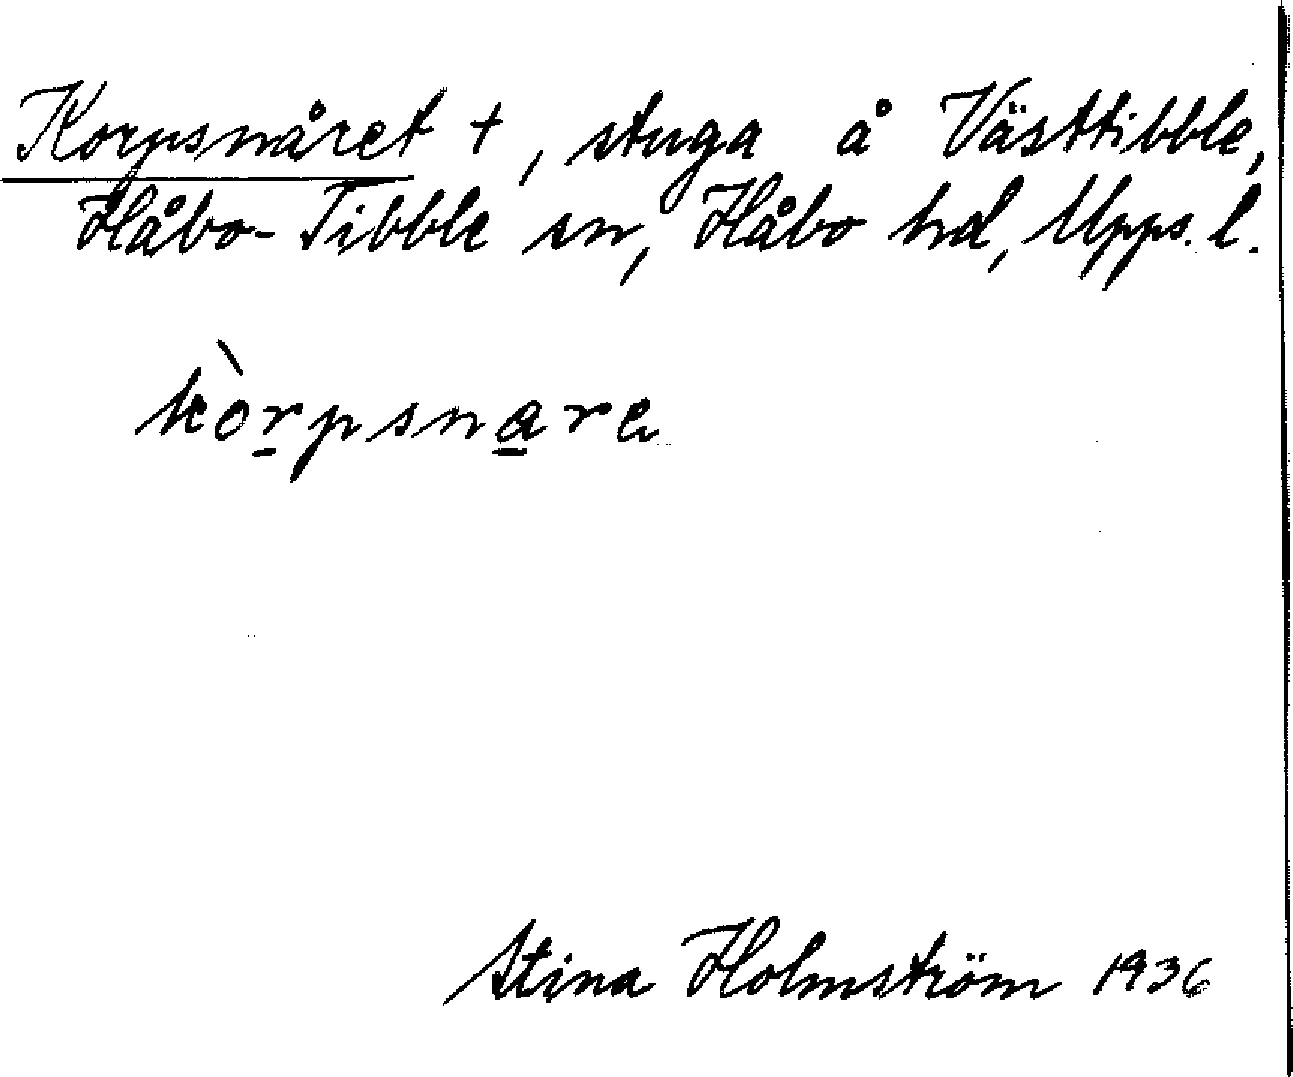 Korpsnåret +, stuga å Västtibble,
Håbo-Tibble sn, Håbo hd, Upps. l.
kòrpsnare
Stina Holmström 1936